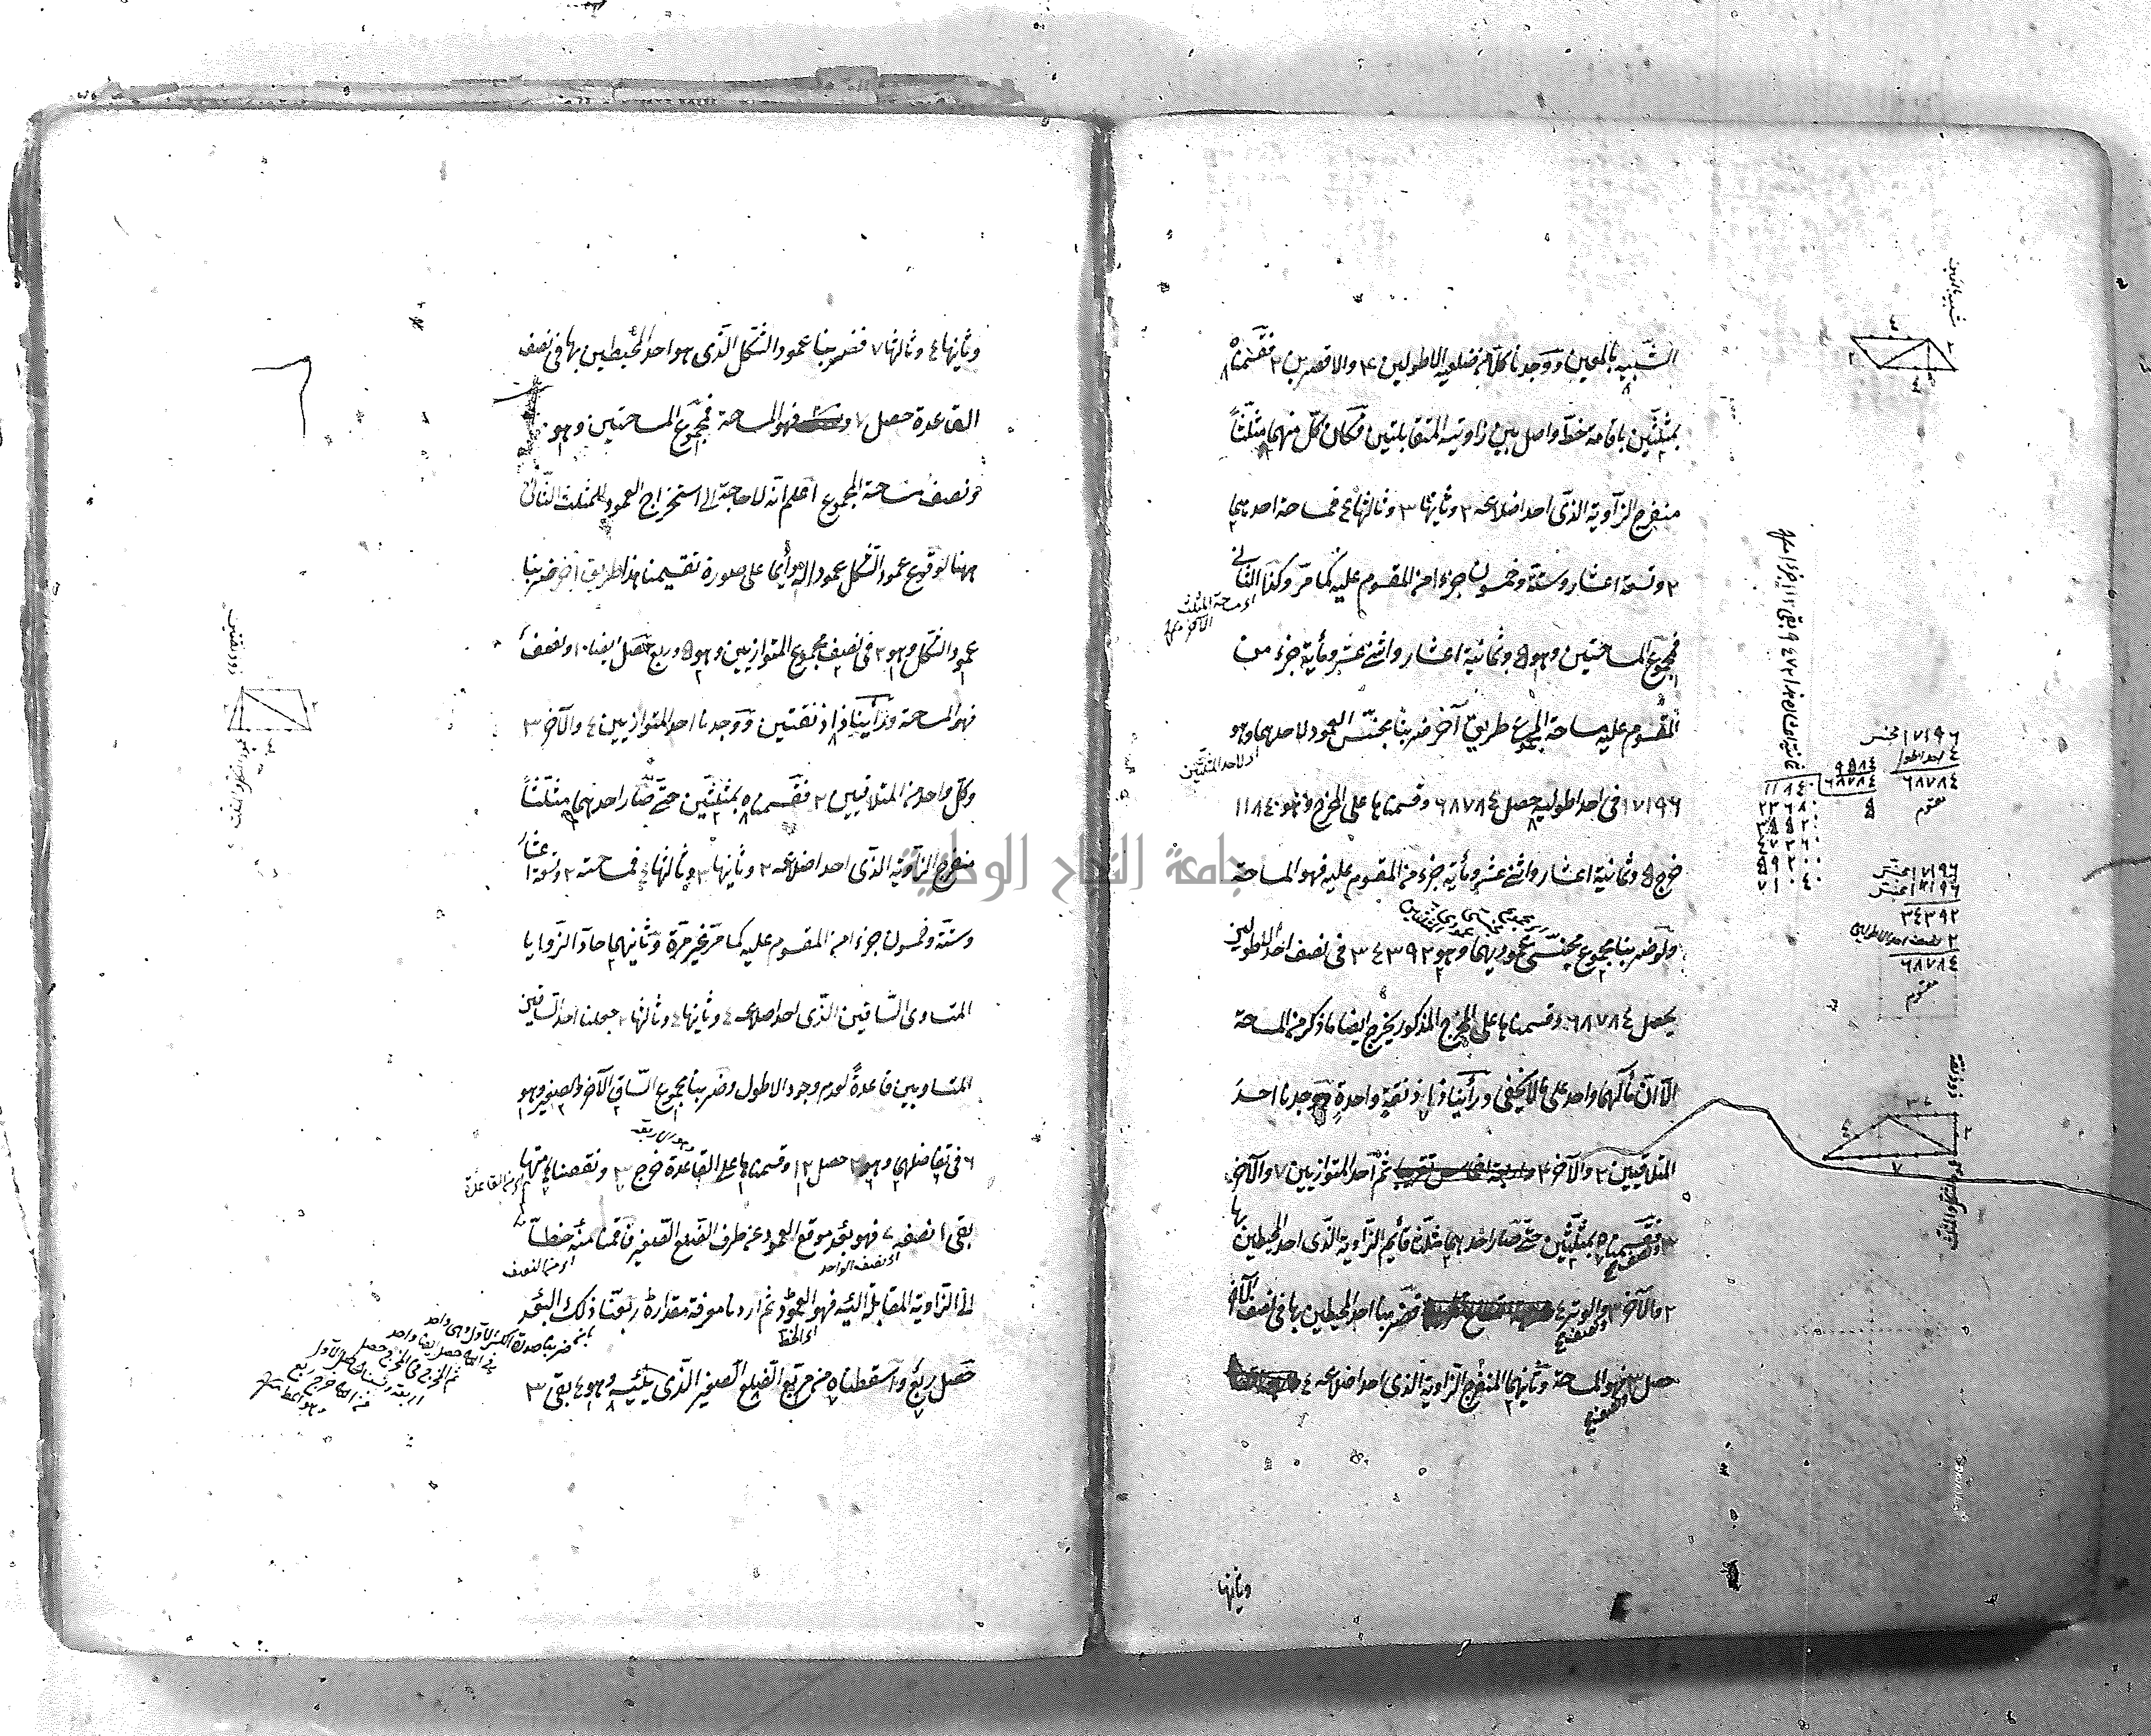 الشبيه بالمعين ووجدنا كلا من ضلعيه الاطولين ٤ والاقصرين ٢ فقسمناه
بمثلثين باقامة خط واصل بين زاويتيه المتقابلتين فكان كل منهما مثلثاً
منفرج الزاوية الذى احد اضلاعه ٢ وثانيها ٣ وثالثها ٤ فمساحة احدهما
٢ وتسعة اعشار وستة وخمسون جزءا من المقسوم عليه كما مرّ وكذا الثانى
فمجموع المساحتين وهو ٥ وثمانية اعشار واثنى عشر ومأية جزء من
المقسوم عليه مساحة المجموع طريق آخر ضربنا مجنّس العمود لاحدهما وهو
١٧١٩٦ فى احد اطوليه حصل ٦٨٧٨٤ وقسمناها على المخرج وهو ١١٨٤٠
خرج ٥ وثمانية اعشار واثنى عشر ومأية جزء من المقسوم عليه فهو المساحة
ولو ضربنا مجموع مجنسى عموديهما وهو ٣٤٣٩٢ فى نصف احد الاطولين
يحصل ٦٨٧٨٤ وقسمناها على المخرج المذكور يخرج ايضا ما ذكر من المساحة
الا ان مآلهما واحد على ما لا يخفى ورأينا ذا زنقة واحدة ووجدنا احد
المتلاقيين ٢ والآخر ٤ ثم احد المتوازيين ٧ والآخر
٣ فقسمناه بمثلثين حتى صار احدهما مثلثا قائم الزاوية الذى احد المحيطين بها
٢ والآخر ٣ والوتر ٤ فضربنا احد المحيطين بها فى نصف الآخر
حصل ٣ فهو المساحة وثانيهما المنفرج الزاوية الذى احد اضلاعه ٤
وثانيها
وثانيها ٤ وثالثها ٧ فضربنا عمود الشكل الذى هو احد المحيطين بها فى نصف
القاعدة حصل ٧ فهو المساحة فمجموع المساحتين وهو ١٠
ونصف مساحة المجموع اعلم انه لا حاجة الى استخراج العمود للمثلث الثانى
ههنا لوقوع عمود الشكل عمودا له وأيما على صورة تقسيمنا هذا طريق آخر ضربنا
عمود الشكل وهو ٢ فى نصف مجموع المتوازيين وهو ٥ وربع حصل ايضا ١٠ ونصف
فهو المساحة ورأينا ذا زنقتين ووجدنا احد المتوازيين ٤ والآخر ٣
وكل واحد من المتلاقيين ٢ فقسمناه بمثلثين حتى صار احدهما مثلثاً
منفرج الزاوية الذى احد اضلاعه ٢ وثانيها ٣ وثالثها ٤ فمساحته ٢ وتسعة اعشار
وستة وخمسون جزءا من المقسوم عليه كما مرّ غير مرة وثانيهما حاد الزوايا
المتساوى الساقين الذى احد اضلاعه ٤ وثانيها ٤ وثالثها ٢ جعلنا احد الساقين
المتساويين قاعدة لعدم وجود الاطول وضربنا مجموع الساق الآخر والصغير وهو
٦ فى تفاضلهما وهو ٢ حصل ١٢ وقسمناها على القاعدة خرج ٣ ونقصناها منها
بقى ١ نصفه فهو بعد موقع العمود عن طرف الضلع الصغير فاقمنا منه خطاً
الى الزاوية المقابلة اليه فهو العمود ثم اردنا معرفة مقداره ربعنا ذلك البعد
حصل ربع واسقطناه من مربع الضلع الصغير الذى يليه وهو ٤ بقى ٣
شبيه بالمعين
اى مساحة المثلث
اى لاحد المثلثين
١٧١٩٦ مجنس
٦٨٧٨٤
مقسوم
١٧١٩٦ مجنس
١٧١٩٦ مجنس
٣٤٣٩٢
٦٨٧٨٤
مقسوم
ذو زنقة
ذو زنقتين
اى من القاعدة
اى نصف الواحد
اى من النصف
اى الخط
جامعة النجاح الوطنية